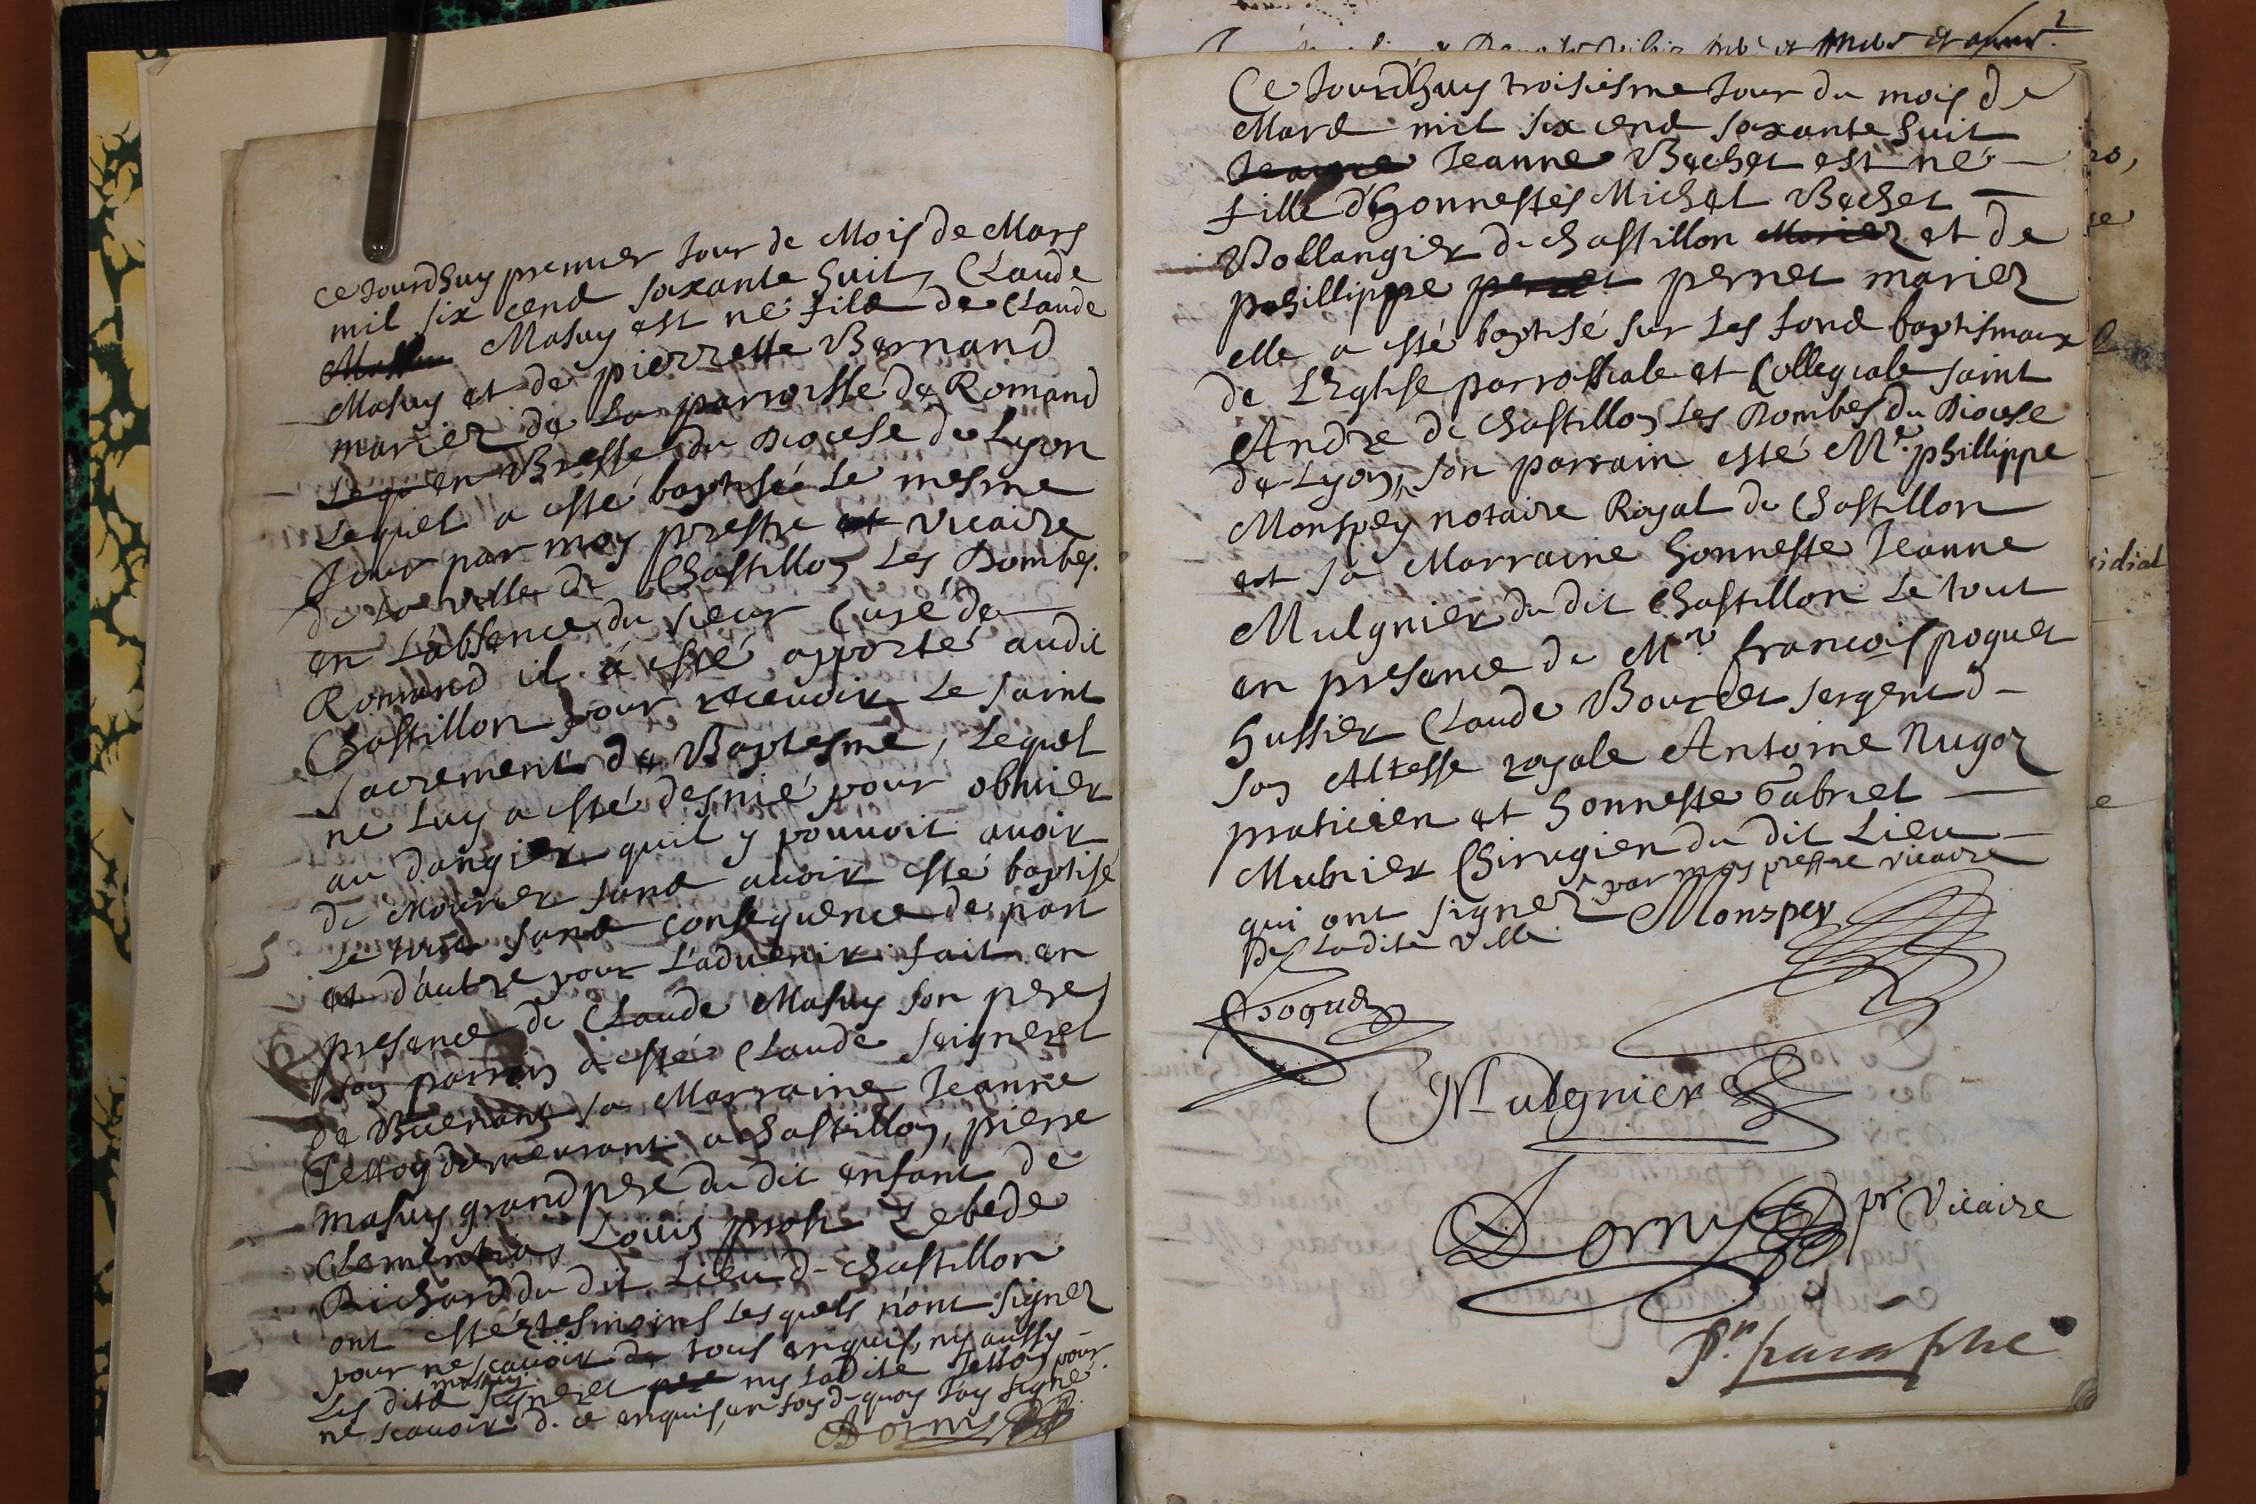 Ce Jourdhuy premier Jour de Mois de Mars
mil six cend soxante huit, Claude
Masuy est né fild de Claude
Masuy et de pierrette Bernand
mariez de La parroisse de Romand
en Bresse du Diocese de Lyon
Lequel a esté baptisé Le mesme
Jour par moy prestre et vicaire
de La ville de Chastillon Les Dombes.
en L'absence du sieur Curé de
Romand il a esté apporté audit
Chastillon pour recevoir Le saint
sacrement de Baptesme, Lequel
ne Luy a esté desnié pour obuier
au dangier quil y pouuoit auoir
de mourier sand auoir esté baptisé
Le tout sand consequence de part
et d'autre pour L'aduenir fait en
presance de Claude Masuy son pere,
son parrain a esté Claude seigneret
de Buenans sa Marraine Jeanne
Tettoy demeurant a Chastillon, pierre
masuy grand pere du dit enfant de
Clementia, Louis Zebede
Richard du dit Lieu d- Chastillon
ont esté tesmoins Lesquels n'ont signez
pour ne scauoir de tous enquis, ny aussy
masuy
Les ditd signeret ny Ladite Tettoy pour
ne scauoir d. ce enquis, en foy d-quoy J'ay signé
Dornuy
5
Ce Jourdhuy troisiesme Jour du mois de
Mard mil six cend soxante huit
Jeanne Bachet est né
fille d'honnestes Michel Bachet
Bollangier de Chastillon Mariez et de
phillippe pernet pernet mariez
elle a esté baptisé sur Les fond baptismaux
de L'Eglise parrossiale et Collegiale saint
Andre de Chastillon Les Dombes du Diocese
de Lyon, son parrain esté Mre. phillippe
Monspey notaire Royal de Chastillon
et sa Marraine honneste Jeanne
Mulgnier du dit Chastillon Le tout
en presance de Mre. francois poguet
hussier Claude Bourdet sergent d-
son Altesse royale Antoine Nugoz
praticien et honneste Gabriel
Mulnier Chirugien du dit Lieu
qui ont signez par moy prestre vicaire
de Ladite ville. Monspey
Poguet
Mulgnier
Dornuy pr. Vicaire
pn. paraphe